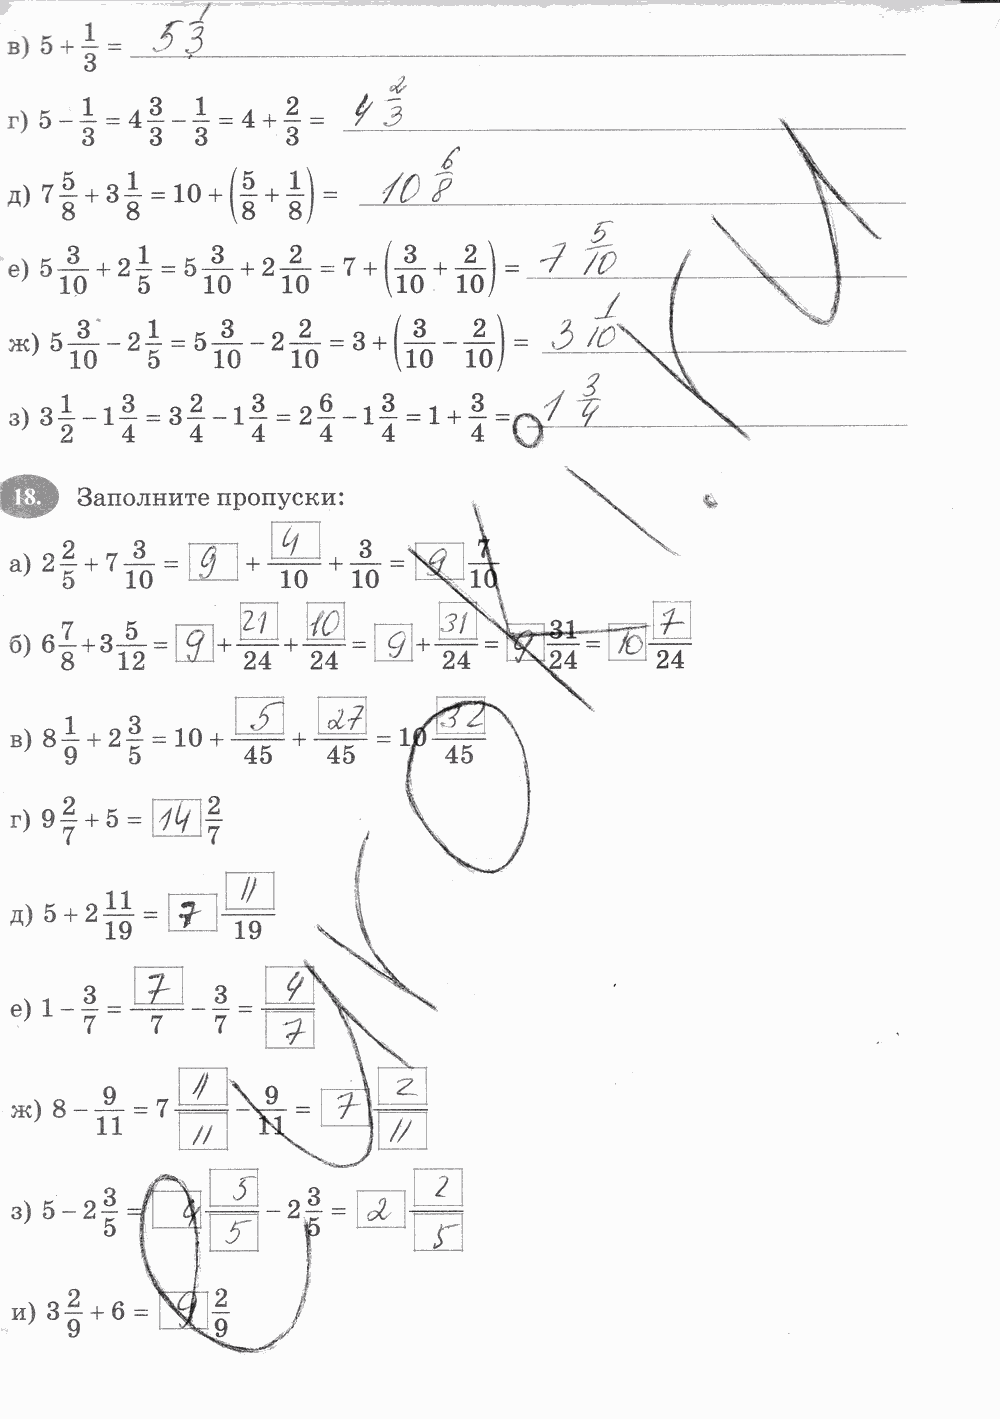 в) 5 + 1/3 = 5 1/3
г) 5 − 1/3 = 4 3/3 − 1/3 = 4 + 2/3 = 4 2/3
д) 7 5/8 + 3 1/8 = 10 + (5/8 + 1/8) = 10 6/8
е) 5 3/10 + 2 1/5 = 5 3/10 + 2 2/10 = 7 + (3/10 + 2/10) = 7 5/10
ж) 5 3/10 − 2 1/5 = 5 3/10 − 2 2/10 = 3 + (3/10 − 2/10) = 3 1/10
з) 3 1/2 − 1 3/4 = 3 2/4 − 1 3/4 = 2 6/4 − 1 3/4 = 1 + 3/4 = 1 3/4
18. Заполните пропуски:
а) 2 2/5 + 7 3/10 = 9 + 4/10 + 3/10 = 9 7/10
б) 6 7/8 + 3 5/12 = 9 + 21/24 + 10/24 = 9 + 31/24 = 9 31/24 = 10 7/24
в) 8 1/9 + 2 3/5 = 10 + 5/45 + 27/45 = 10 32/45
г) 9 2/7 + 5 = 14 2/7
д) 5 + 2 11/19 = 7 11/19
е) 1 − 3/7 = 7/7 − 3/7 = 4/7
ж) 8 − 9/11 = 7 11/11 − 9/11 = 7 2/11
з) 5 − 2 3/5 = 4 5/5 − 2 3/5 = 2 2/5
и) 3 2/9 + 6 = 9 2/9